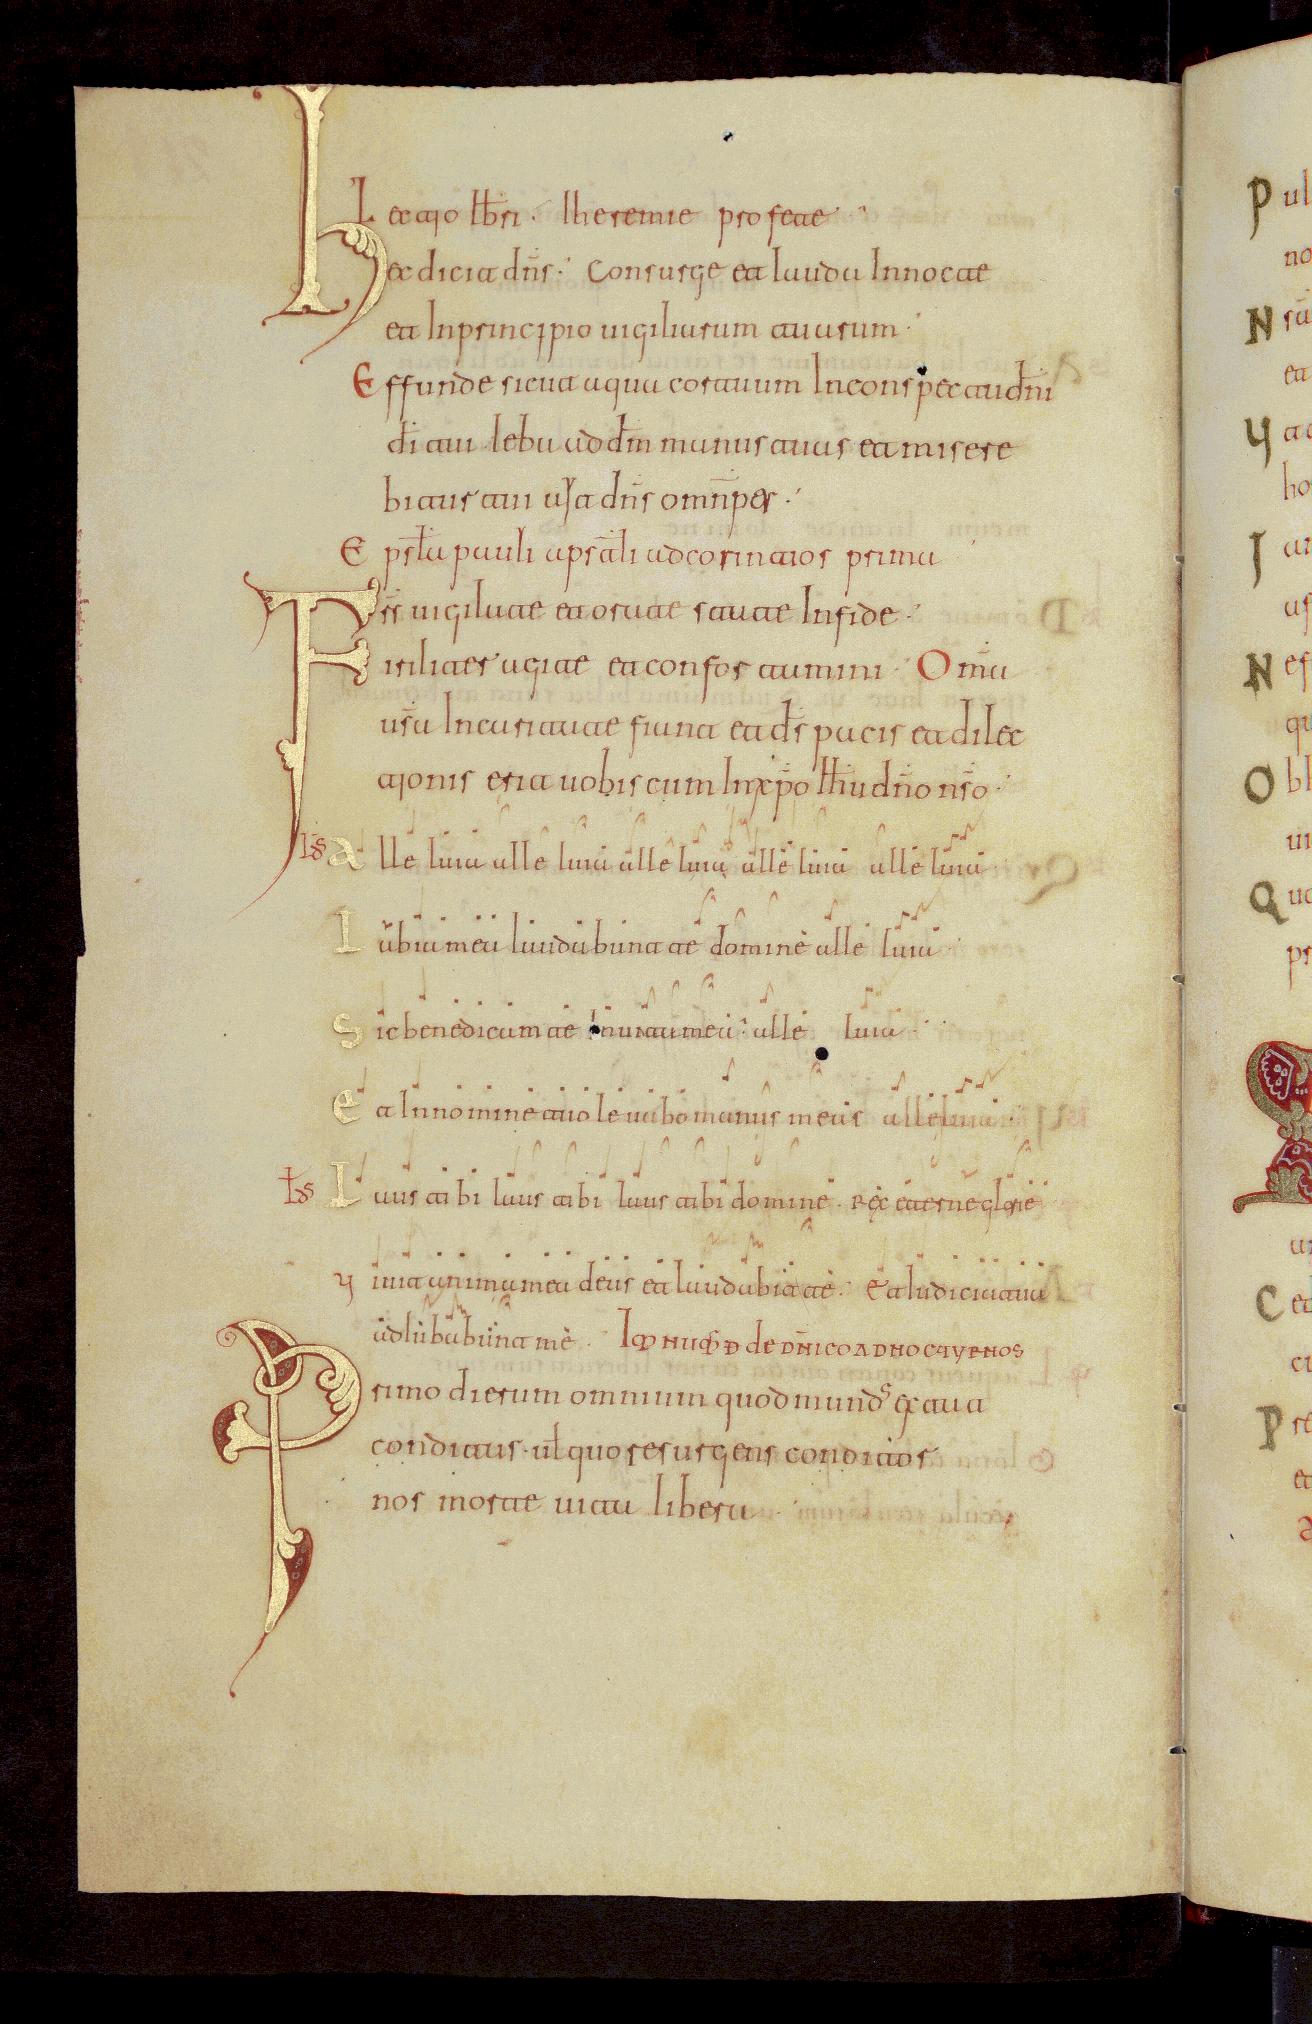 Lectio libri Iheremie profete
Hec dicit dns: Consurge et lauda In nocte
et In principio uigiliarum tuarum
Effunde sicut aqua cor tuum In conspectu dni
di tui leba ad dm manus tuas et misere
bitur tui dns omnps
Epstla pauli apstli ad corintios prima
Frs uigilate et orate state In fide
uiriliter agite et confortamini Omia
usa In caritate fiant et ds pacis et dilec
tionis erit uobiscum In xpo Ihu dno nso
lds alleluia alleluia alleluia alleluia alleluia
Labia mea laudabunt te domine alleluia
Sic benedicam te In uita mea alleluia
Et In nomine tuo leuabo manus meas alleluia
lds Laus tibi laus tibi laus tibi domine rex eterne glorie
Viuit anima mea deus et laudabit te. Et Iudicia tua
adiubabunt me. de dnico ad nocturnos
Primo dierum omnium quod munds extat
conditus uel quo resurgens conditor
nos morte uicta libera